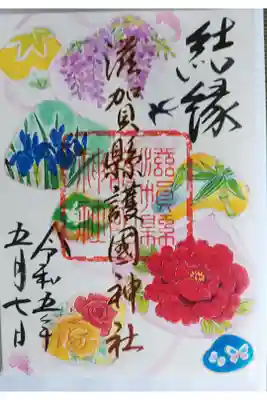 結縁
滋賀縣護國神社
滋賀縣護國神社
令和五年
五月七日